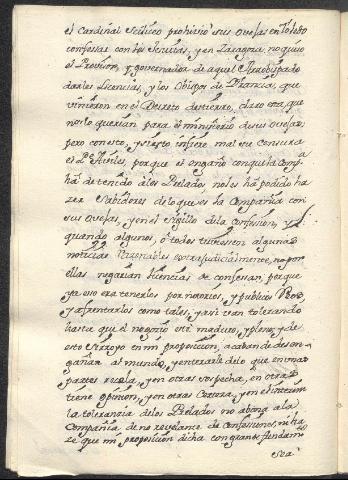 el Cardenal Siliceo prohivio sus Ovejas en Toledo
confesar con los Jesuitas, y en Zaragoza no quiso
el Provisor, y governador de aquel Arzobispado
darles Licencias, y los Obispos de Francia, que
vinieron en el Decreto destierro, claro esta, que
no los querian para el ministerio de sus Ovejas;
pero con esto, y cierto infiere mal su Consura
el Pe. porque el engaño con que la Compa.
ha detenido a los Prelados, no les ha podido ha
zer Sabidores de lo que es la Compañia con
sus Ovejas, y en el Sigillo de la Confesion, y
quando algunos, o todos tuviessen algunas
noticias razonables extrajudicialmente, no por
ellas negarian licencias de confesar, porque
ya eso era tenerlos por notorios, y publicos Reos
y afrentarlos como tales, y asi van tolerando
hasta que el negocio esté maduro, y pleno, y de
esto Arroyo en mi proposicion, acaban de desen
gañar al mundo, y enterarle de lo que en unas
partes rezela, y en otras sospecha, en otras
tiene opinion, y en otras Certeza, y en el interin
la tolerancia de los Prelados no abona a la
Compañia de no revelante de Confesiones, ni ha
ze que mi proposicion dicha con grandes fundamtos
sea